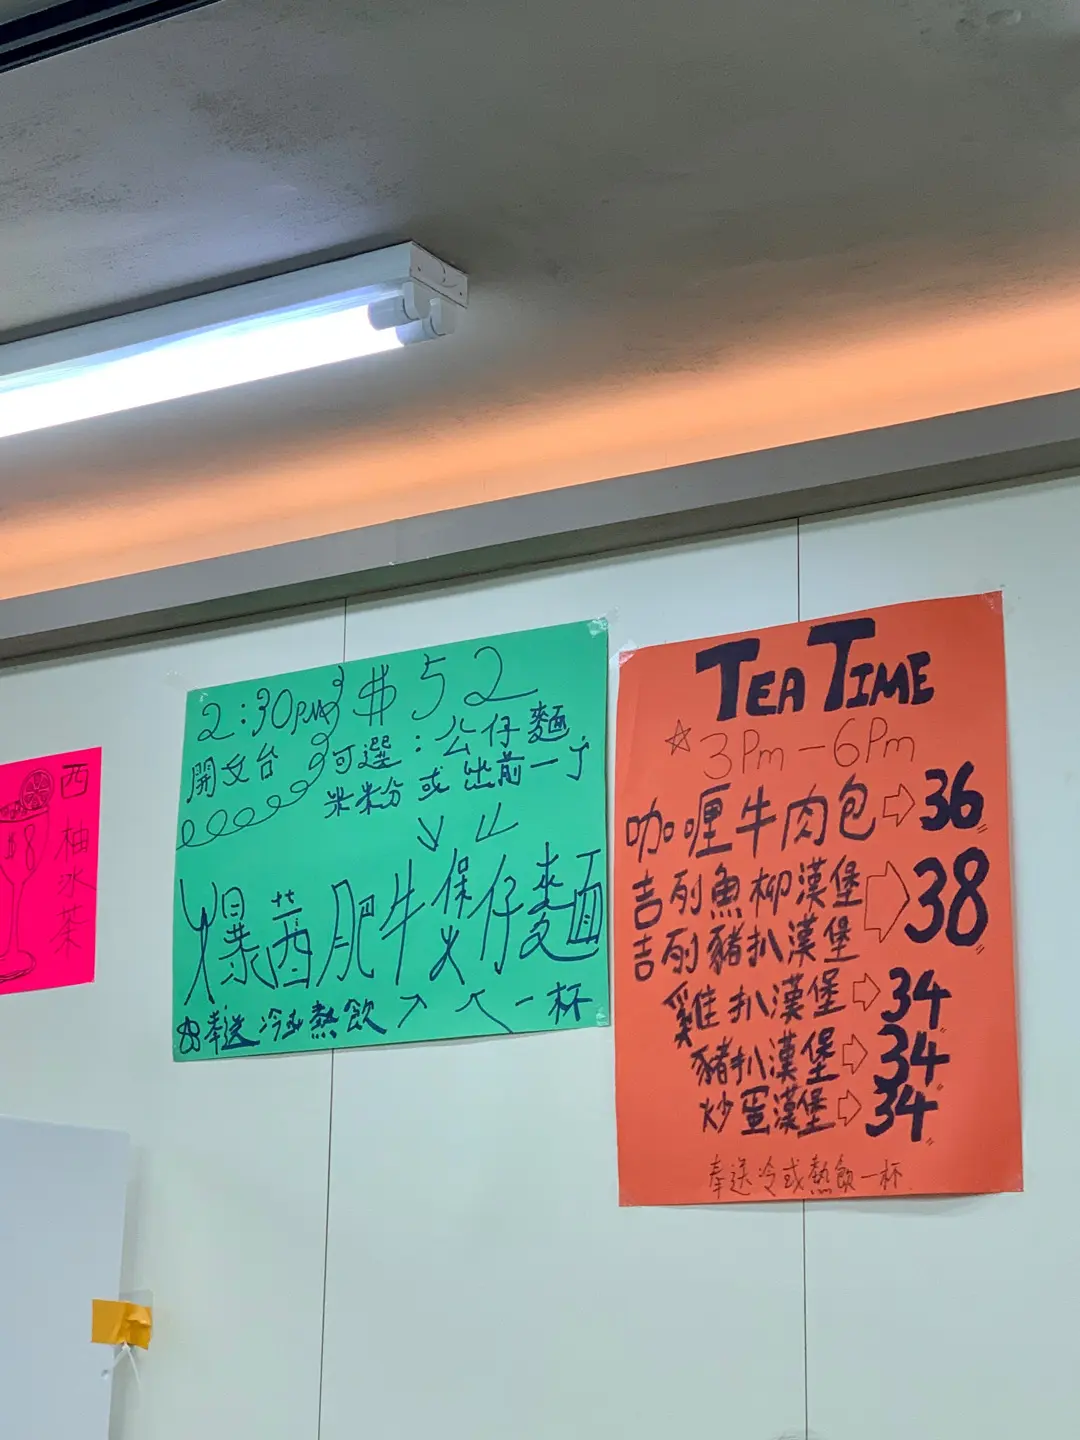 西柚冰茶
$8
2:30PM $52
開文台 可選：公仔麵
米粉或出前一丁
爆茜肥牛煲仔麵
奉送冷或熱飲一杯
TEA TIME
3Pm - 6Pm
咖喱牛肉包 36
吉列魚柳漢堡 38
吉列豬扒漢堡
雞扒漢堡 34
豬扒漢堡 34
炒蛋漢堡 34
奉送冷或熱飲一杯